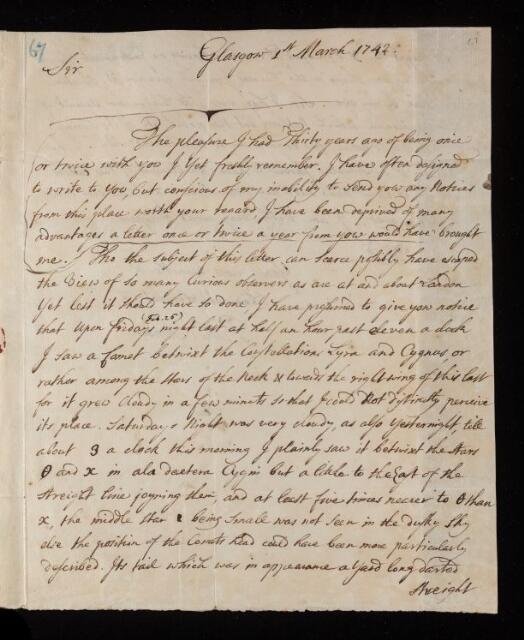 67
Glasgow 1st March 1742.
Sir
The pleasure I had Thirty years ago of being once
or twice with you I yet freshly remember. I have often designed
to write to you, but conscious of my inability to send you any Notices
from this place worth your regard I have been deprived of many
advantages a letter once or twice a year from you would have brought
me. Tho the subject of this letter can scarce possibly have escaped
the View of so many Curious observers as are at and about London
Yet lest it should have so done I have presumed to give you notice
that Upon fridays (Feb. 26) night last at half an hour past eleven a clock
I saw a Comet betwixt the Constellations Lyra and Cygnus or
rather among the stars of the Neck & towards the right wing of this last
for it grew Cloudy in a few minuts so that I could not distinctly perceive
its place. Saturday's Night was very cloudy, as also Yesternight till
about 3 a clock this morning I plainly saw it betwixt the stars
θ and x in ala dextera Cygni but a little to the East of the
streight line joyning them, and at least five times neerer to θ than
x, the middle star ι being small was not seen in the dusky sky
else the position of the Comets head could have been more particularly
described. Its tail which was in appearance a yeard long darted
streight